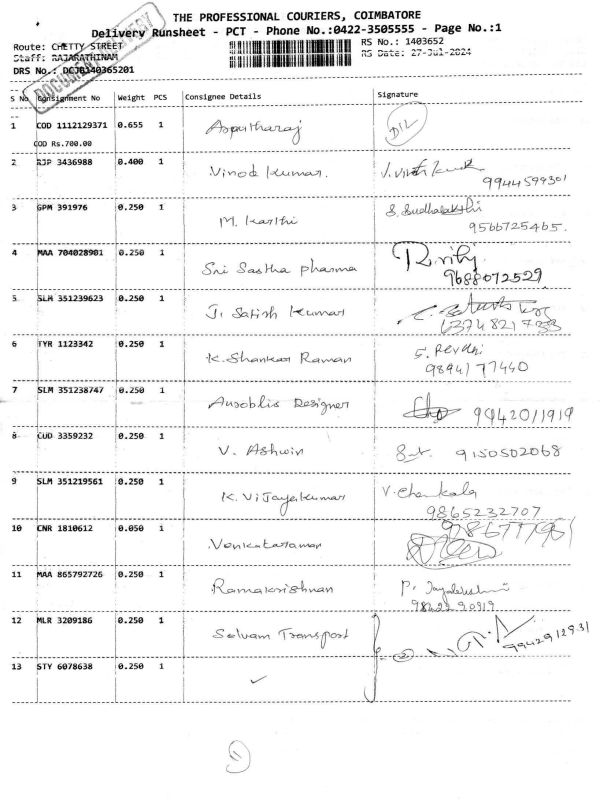 THE PROFESSIONAL COURIERS, COIMBATORE
Delivery Runsheet - PCT - Phone No.:0422-3505555 - Page No.:1
Route: CHETTY STREET
RS No.: 1403652
Staff: RAJARATHINAM
RS Date: 27-Jul-2024
DRS No.: DCJB140365201
DOCUMENT DELIVERY
S No Consignment No Weight PCS Consignee Details Signature
1 COD 1112129371 0.655 1 D/L
COD Rs.700.00
2 RJP 3436988 0.400 1 Vinod Kumar. 9944599301
3 GPM 391976 0.250 1 M. Karthi S. Sudhalakshi
9566725465.
4 MAA 704028901 0.250 1 Sri Sastha pharma
9688072529
5 SLM 351239623 0.250 1 J. Satish Kumar
6374821733
6 TYR 1123342 0.250 1 K. Shankar Raman
9894177440
7 SLM 351238747 0.250 1 Auroblis Designer 9942011919
8 CUD 3359232 0.250 1 V. Ashwin 9150502068
9 SLM 351219561 0.250 1 K. Vijayakumar V. Chenkala
9865232707
10 CNR 1810612 0.050 1 Venkataraman
11 MAA 865792726 0.250 1 Ramakrishnan
12 MLR 3209186 0.250 1 Selvam Transport
13 STY 6078638 0.250 1